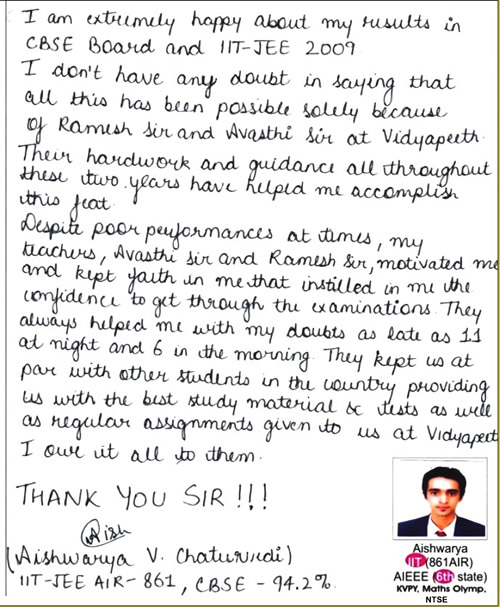 I am extremely happy about my results in
CBSE Board and IIT-JEE 2009
I don't have any doubt in saying that
all this has been possible solely because
of Ramesh Sir and Avasthi Sir at Vidyapeeth.
Their hardwork and guidance all throughout
these two years have helped me accomplish
this feat.
Despite poor performances at times, my
teachers, Avasthi Sir and Ramesh Sir, motivated me
and kept faith in me that instilled in me the
confidence to get through the examinations. They
always helped me with my doubts as late as 11
at night and 6 in the morning. They kept us at
par with other students in the country providing
us with the best study material & tests as well
as regular assignments given to us at Vidyapeet
I owe it all to them.
THANK YOU SIR !!!
Aish
(Aishwarya V. Chaturvedi)
IIT-JEE AIR- 861, CBSE - 94.2%.
Aishwarya
IIT (861AIR)
AIEEE (6th state)
KVPY, Maths Olymp,
NTSE